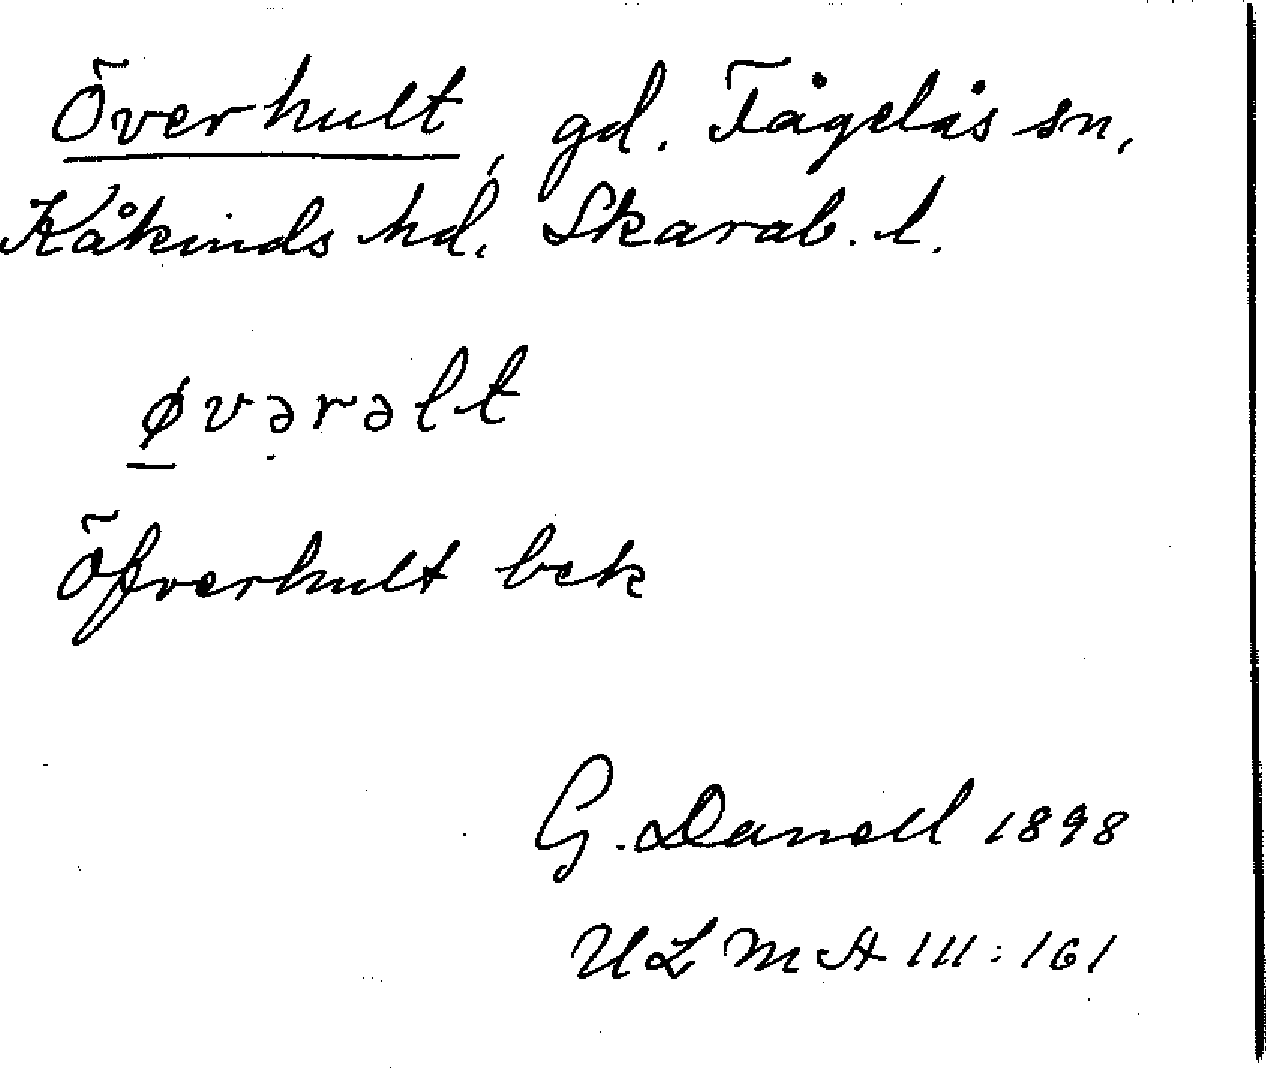 Överhult, gd. Fågelås sn,
Kåkinds hd. Skarab. l.
øvərəlt
Öfverhult bek
G. Danell 1898
ULMA 111:161